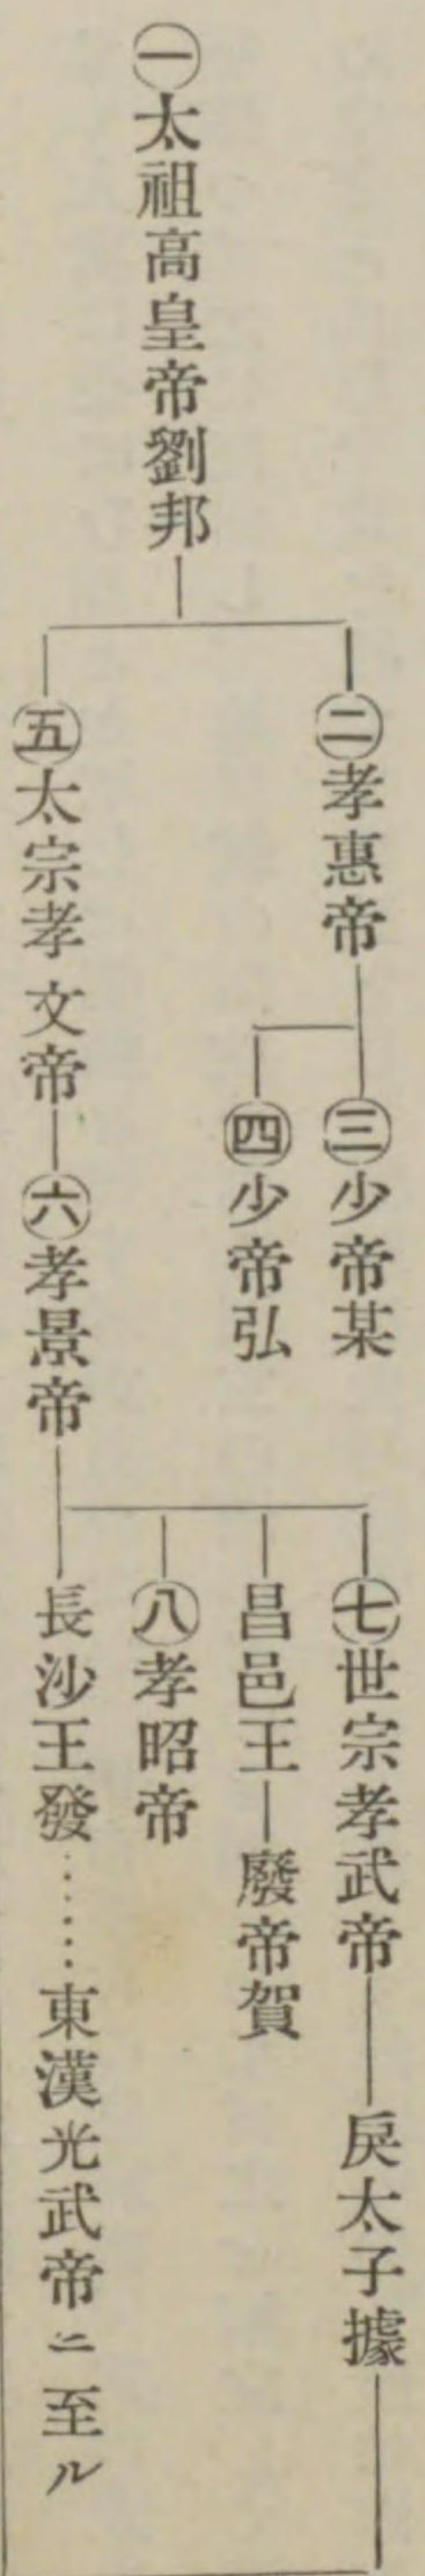 ㊀太祖高皇帝劉邦
㊁孝惠帝
㊂少帝某
㊃少帝弘
㊄太宗孝文帝
㊅孝景帝
㊆世宗孝武帝
戾太子據
昌邑王
廢帝賀
㊇孝昭帝
長沙王發……東漢光武帝ニ至ル